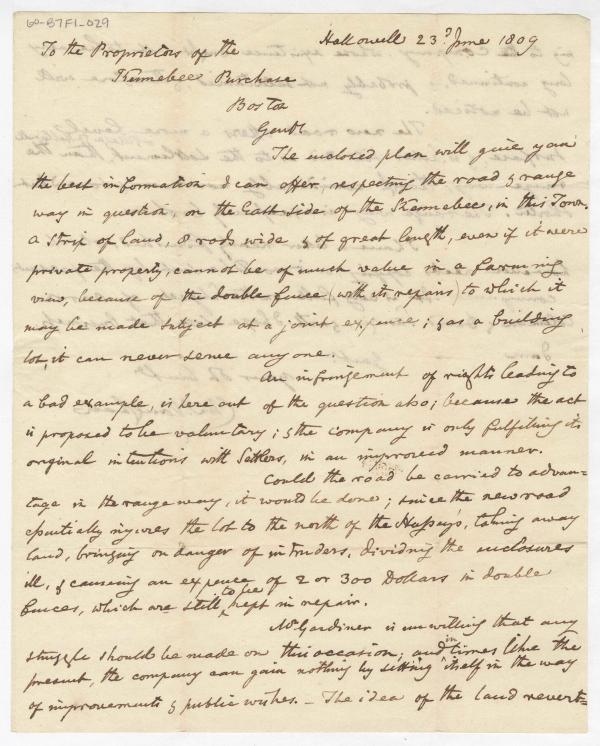 60-B7F1-029
Hallowell 23d June 1809
To the Proprietors of the
Kennebec Purchase
Boston
Gentn
The enclosed plan will give you
the best information I can offer, respecting the road & range
way in question, on the East Side of the Kennebec, in this Town.
A Strip of land, 8 rods wide & of great length, even if it were
private property, cannot be of much value in a farming
view, because of the double fence (with its repairs) to which it
may be made subject at a joint expence; & as a building
lot, it can never serve any one.
An infringement of rights leading to
a bad example, is here out of the question also; because the act
is proposed to be voluntary; & the company is only fulfilling its
original intentions with Settlers, in an improved manner.
Could the road be carried to advan=
tage in the range way, it would be done; since the new road
essentially injures the lot to the north of the Hussey's, taking away
land, bringing on danger of intruders, dividing the enclosures
ill, & causing an expence of 2 or 300 Dollars in double
fences, which are still to be kept in repair.
Mr Gardiner is unwilling that any
struggle should be made on this occasion; and in times like the
present, the company can gain nothing by setting itself in the way
of improvements & public wishes. – The idea of the land revert=